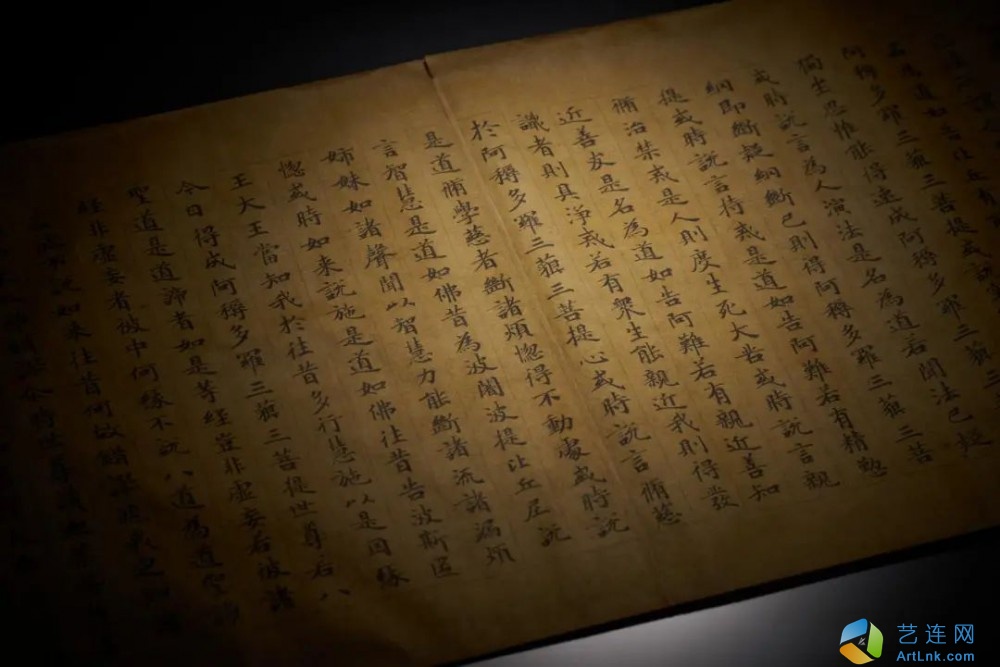 阿耨多羅三藐三菩提或
獨坐思惟能得速成阿耨多羅三藐三菩提
或時説言為人演法是名為道若聞法已疑
網即斷疑網斷已則得阿耨多羅三藐三菩
提或時説言持戒是道如告阿難若有精懃
脩治禁戒是人則度生死大苦或時説言親
近善友是名為道如告阿難若有親近善知
識者則具淨戒若有衆生能親近我則得發
於阿耨多羅三藐三菩提心或時説言脩慈
是道脩學慈者斷諸煩惱得不動處或時説
言智慧是道如佛昔為波闍波提比丘尼説
姊妹如諸聲聞以智慧力能斷諸流諸漏煩
惱或時如来説施是道如佛往昔告波斯匿
王大王當知我於往昔多行慧施以是因緣
今日得成阿耨多羅三藐三菩提世尊若八
聖道是道諦者如是等經豈非虛妄若彼諸
經非虛妄者彼中何緣不説八道為道聖
如来往昔何故錯
艺连网
ArtLnk.com